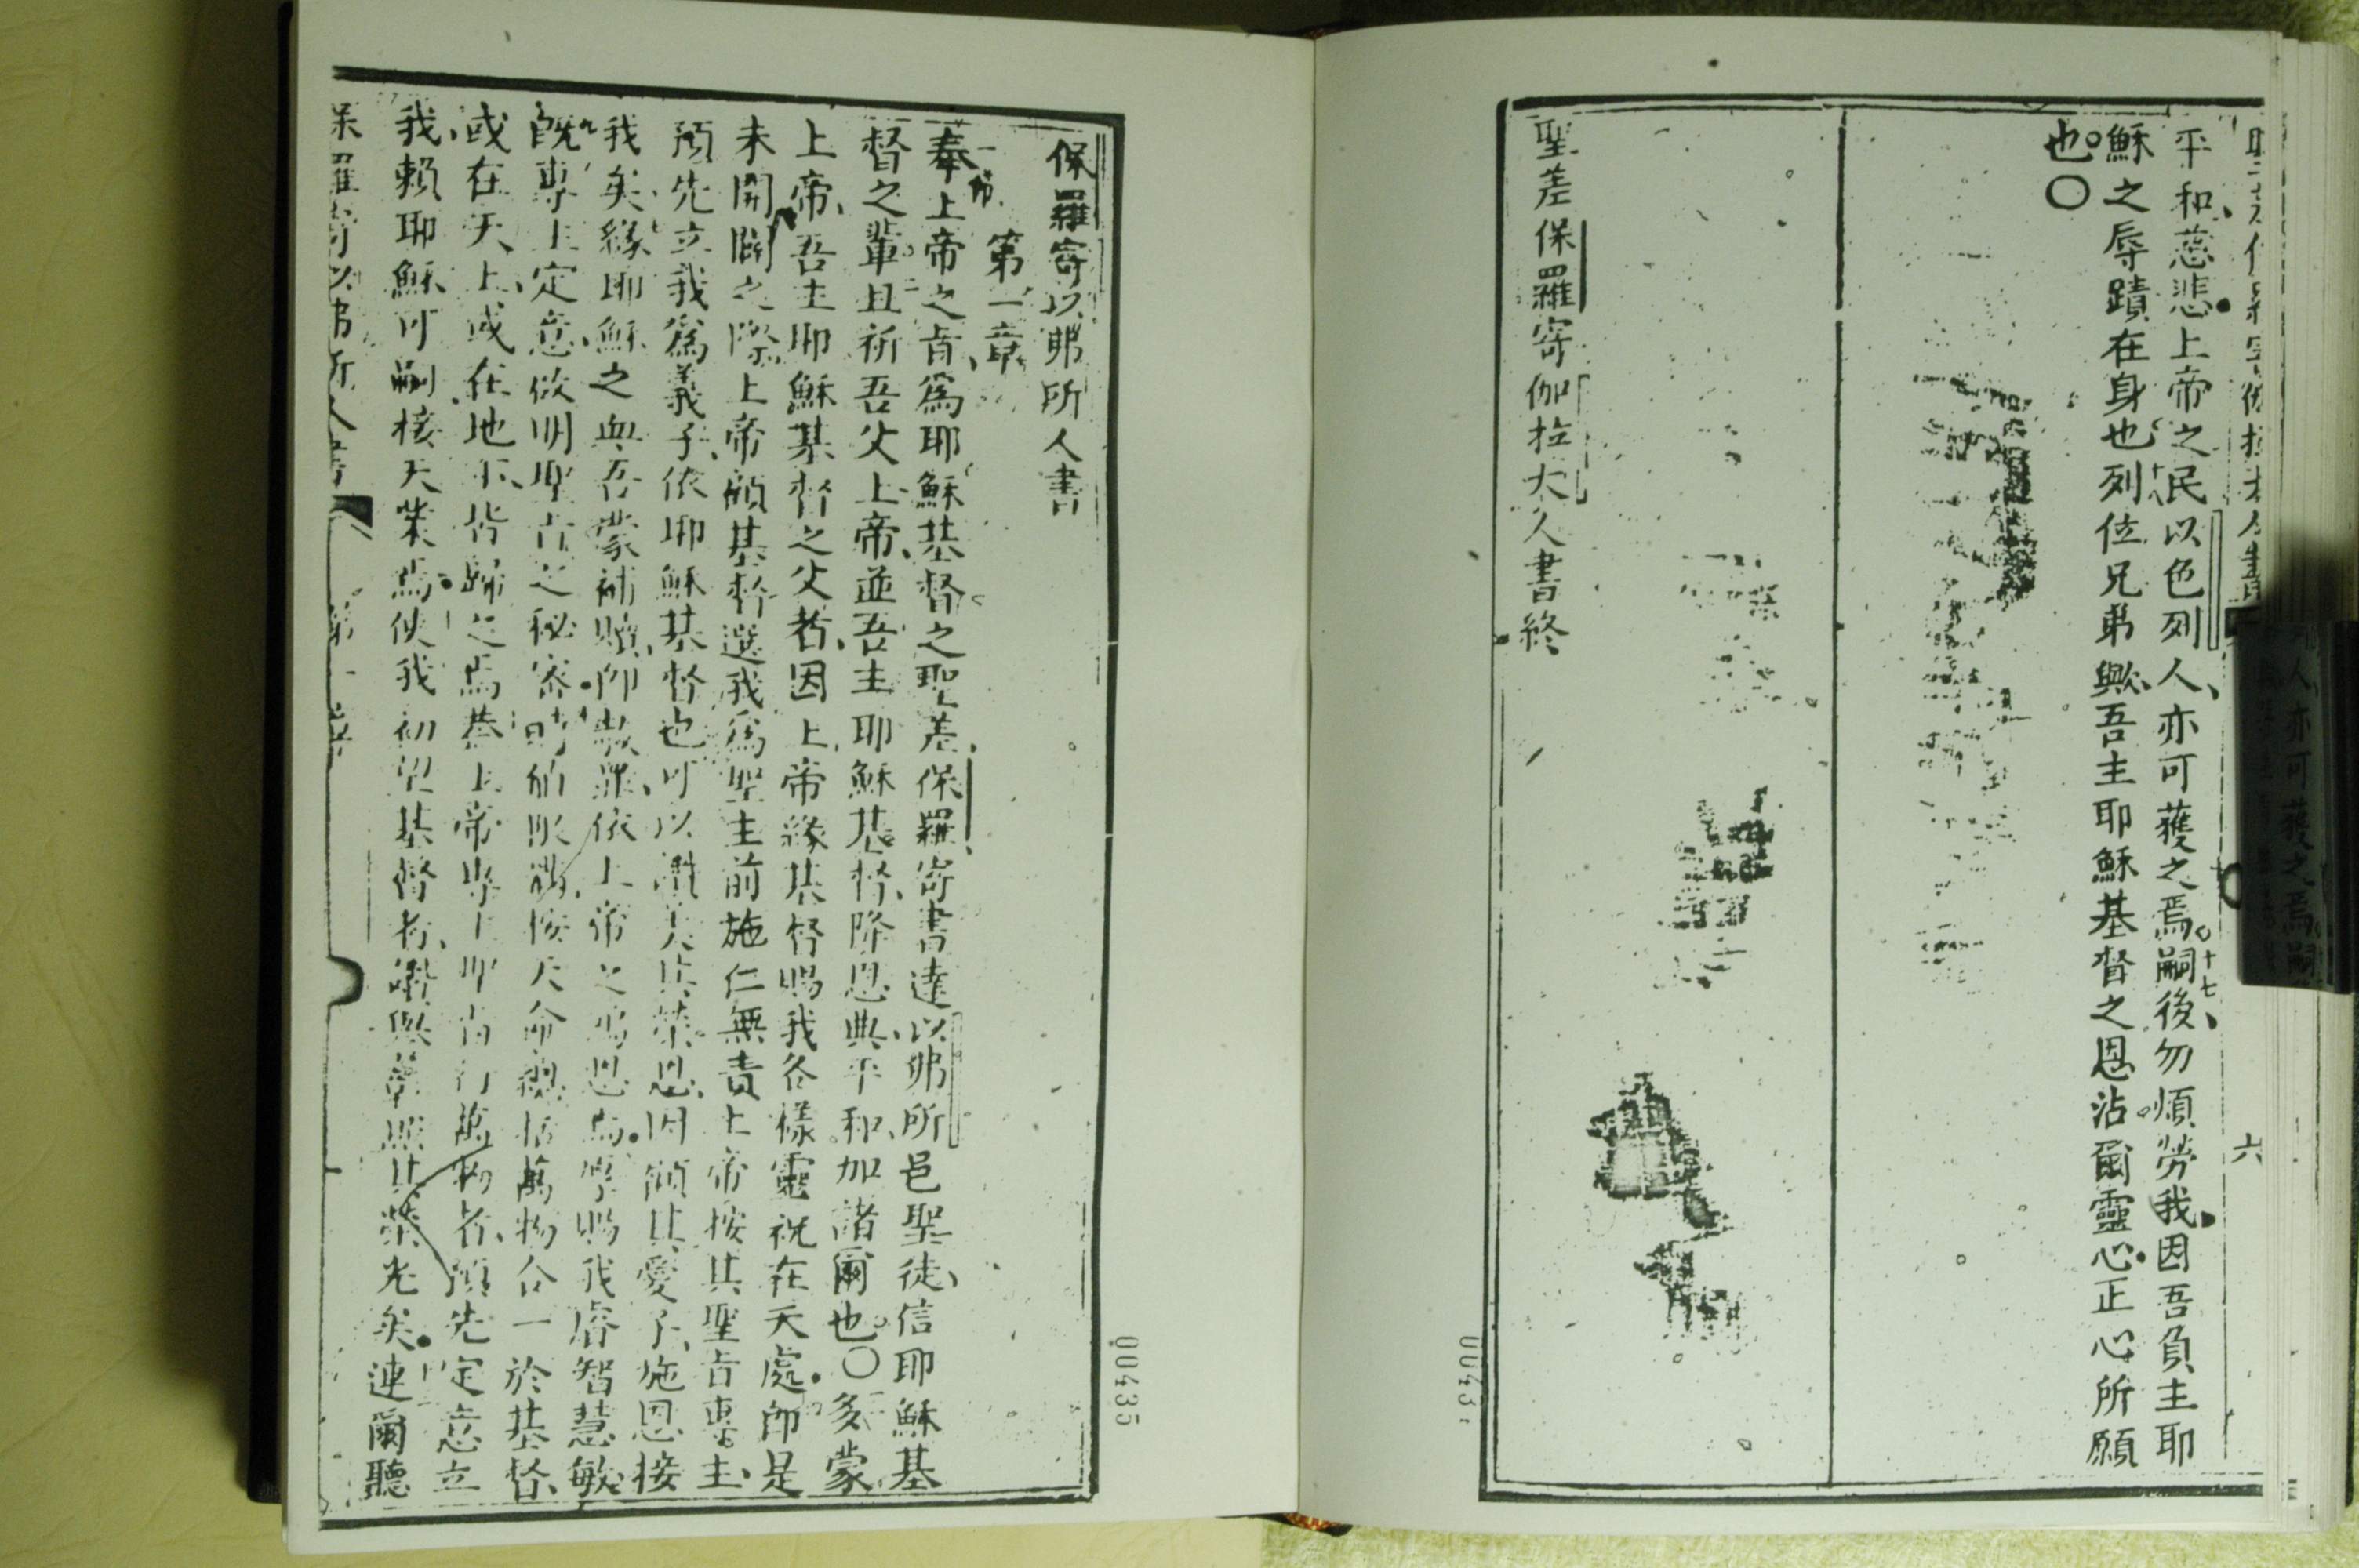 平和慈悲上帝之民以色列人亦可獲之焉嗣後勿煩勞我因吾負主耶
十七
穌之辱蹟在身也列位兄弟歟吾主耶穌基督之恩沾爾靈心正心所願
也〇
聖差保羅寄伽拉大人書終
六
保羅寄以弗所人書
第一章
奉上帝之旨為耶穌基督之聖差保羅寄書達以弗所邑聖徒信耶穌基
督之輩且祈吾父上帝並吾主耶穌基督降恩典平和加諸爾也〇多蒙
上帝吾主耶穌基督之父者因上帝緣基督賜我各樣靈祝在天處即是
未開闢之際上帝願基督選我為聖主前施仁無責上帝按其聖旨專主
預先立我為義子依耶穌基督也可以讚美其榮恩因傾其愛子施恩接
我矣緣耶穌之血吾蒙補贖即赦罪依上帝之鴻恩焉厚賜我睿智慧敏
既專主定意俶明聖旨之秘密時候按天命總括萬物合一於基督
或在天上或在地下皆歸之焉蓋上帝專主即旨行萬物者預先定意立
我賴耶穌可嗣接天業焉使我初望基督者讚其榮光矣連爾聽
保羅寄以弗所人書
第一章
00435